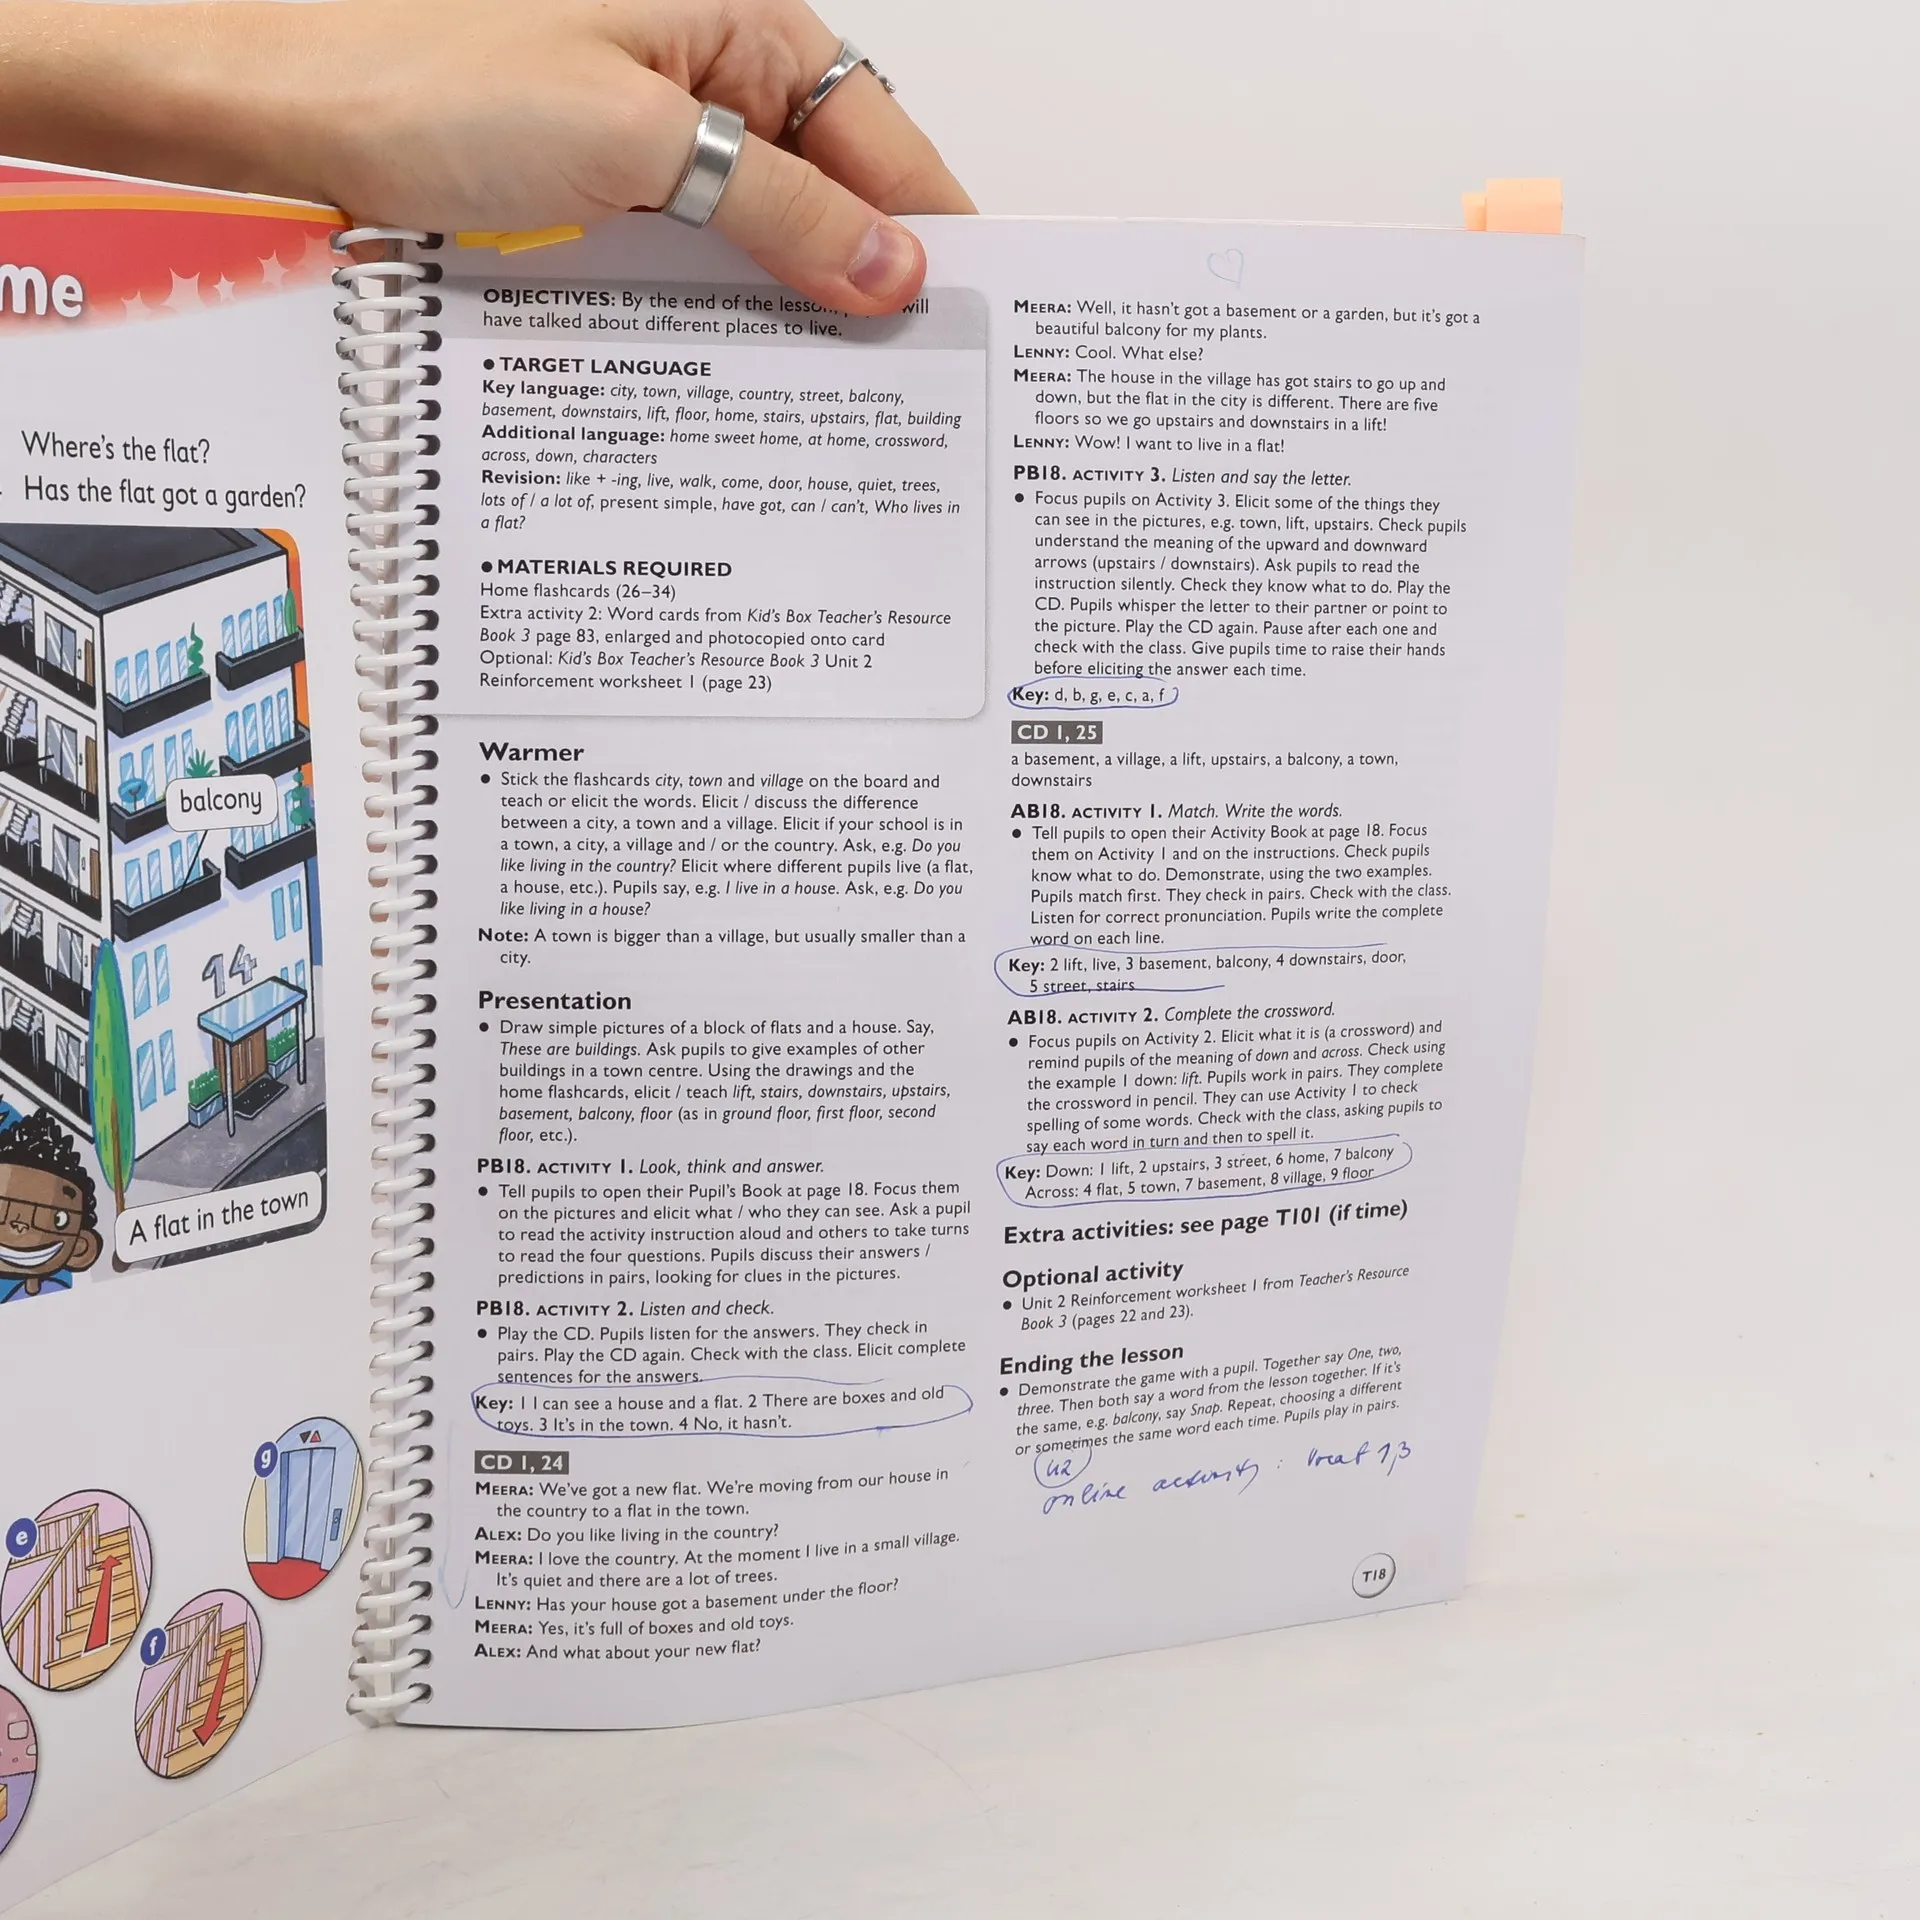 me
Where's the flat?
Has the flat got a garden?
balcony
14
A flat in the town
g
e
f
OBJECTIVES: By the end of the will
have talked about different places to live.
● TARGET LANGUAGE
Key language: city, town, village, country, street, balcony,
basement, downstairs, lift, floor, home, stairs, upstairs, flat, building
Additional language: home sweet home, at home, crossword,
across, down, characters
Revision: like + -ing, live, walk, come, door, house, quiet, trees,
lots of / a lot of, present simple, have got, can / can't, Who lives in
a flat?
● MATERIALS REQUIRED
Home flashcards (26–34)
Extra activity 2: Word cards from Kid's Box Teacher's Resource
Book 3 page 83, enlarged and photocopied onto card
Optional: Kid's Box Teacher's Resource Book 3 Unit 2
Reinforcement worksheet 1 (page 23)
Warmer
● Stick the flashcards city, town and village on the board and
teach or elicit the words. Elicit / discuss the difference
between a city, a town and a village. Elicit if your school is in
a town, a city, a village and / or the country. Ask, e.g. Do you
like living in the country? Elicit where different pupils live (a flat,
a house, etc.). Pupils say, e.g. I live in a house. Ask, e.g. Do you
like living in a house?
Note: A town is bigger than a village, but usually smaller than a
city.
Presentation
● Draw simple pictures of a block of flats and a house. Say,
These are buildings. Ask pupils to give examples of other
buildings in a town centre. Using the drawings and the
home flashcards, elicit / teach lift, stairs, downstairs, upstairs,
basement, balcony, floor (as in ground floor, first floor, second
floor, etc.).
PB18. ACTIVITY 1. Look, think and answer.
● Tell pupils to open their Pupil's Book at page 18. Focus them
on the pictures and elicit what / who they can see. Ask a pupil
to read the activity instruction aloud and others to take turns
to read the four questions. Pupils discuss their answers /
predictions in pairs, looking for clues in the pictures.
PB18. ACTIVITY 2. Listen and check.
● Play the CD. Pupils listen for the answers. They check in
pairs. Play the CD again. Check with the class. Elicit complete
sentences for the answers.
Key: 1 I can see a house and a flat. 2 There are boxes and old
toys. 3 It's in the town. 4 No, it hasn't.
CD 1, 24
MEERA: We've got a new flat. We're moving from our house in
the country to a flat in the town.
ALEX: Do you like living in the country?
MEERA: I love the country. At the moment I live in a small village.
It's quiet and there are a lot of trees.
LENNY: Has your house got a basement under the floor?
MEERA: Yes, it's full of boxes and old toys.
ALEX: And what about your new flat?
MEERA: Well, it hasn't got a basement or a garden, but it's got a
beautiful balcony for my plants.
LENNY: Cool. What else?
MEERA: The house in the village has got stairs to go up and
down, but the flat in the city is different. There are five
floors so we go upstairs and downstairs in a lift!
LENNY: Wow! I want to live in a flat!
PB18. ACTIVITY 3. Listen and say the letter.
● Focus pupils on Activity 3. Elicit some of the things they
can see in the pictures, e.g. town, lift, upstairs. Check pupils
understand the meaning of the upward and downward
arrows (upstairs / downstairs). Ask pupils to read the
instruction silently. Check they know what to do. Play the
CD. Pupils whisper the letter to their partner or point to
the picture. Play the CD again. Pause after each one and
check with the class. Give pupils time to raise their hands
before eliciting the answer each time.
Key: d, b, g, e, c, a, f
CD 1, 25
a basement, a village, a lift, upstairs, a balcony, a town,
downstairs
AB18. ACTIVITY 1. Match. Write the words.
● Tell pupils to open their Activity Book at page 18. Focus
them on Activity 1 and on the instructions. Check pupils
know what to do. Demonstrate, using the two examples.
Pupils match first. They check in pairs. Check with the class.
Listen for correct pronunciation. Pupils write the complete
word on each line.
Key: 2 lift, live, 3 basement, balcony, 4 downstairs, door,
5 street, stairs
AB18. ACTIVITY 2. Complete the crossword.
● Focus pupils on Activity 2. Elicit what it is (a crossword) and
remind pupils of the meaning of down and across. Check using
the example 1 down: lift. Pupils work in pairs. They complete
the crossword in pencil. They can use Activity 1 to check
spelling of some words. Check with the class, asking pupils to
say each word in turn and then to spell it.
Key: Down: 1 lift, 2 upstairs, 3 street, 6 home, 7 balcony
Across: 4 flat, 5 town, 7 basement, 8 village, 9 floor
Extra activities: see page T101 (if time)
Optional activity
● Unit 2 Reinforcement worksheet 1 from Teacher's Resource
Book 3 (pages 22 and 23).
Ending the lesson
● Demonstrate the game with a pupil. Together say One, two,
three. Then both say a word from the lesson together. If it's
the same, e.g. balcony, say Snap. Repeat, choosing a different
or sometimes the same word each time. Pupils play in pairs.
U2
online activity :
T18